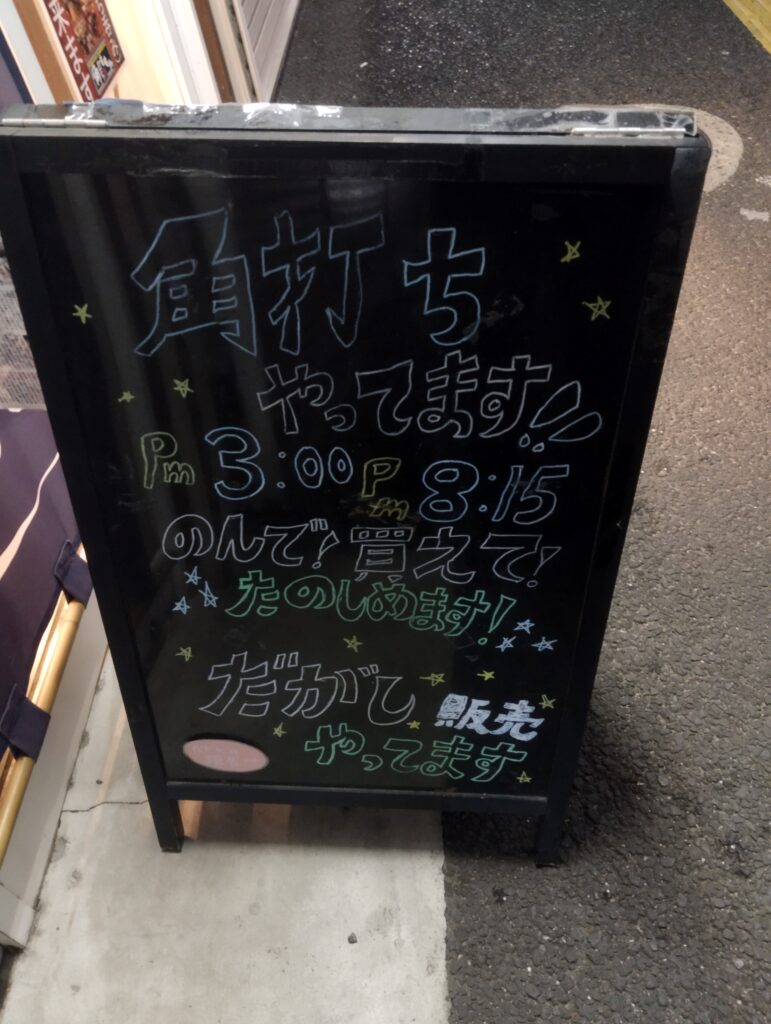 角打ち
やってます!!
Pm 3:00 Pm 8:15
のんで!買えて!
たのしめます!
だがし 販売
やってます